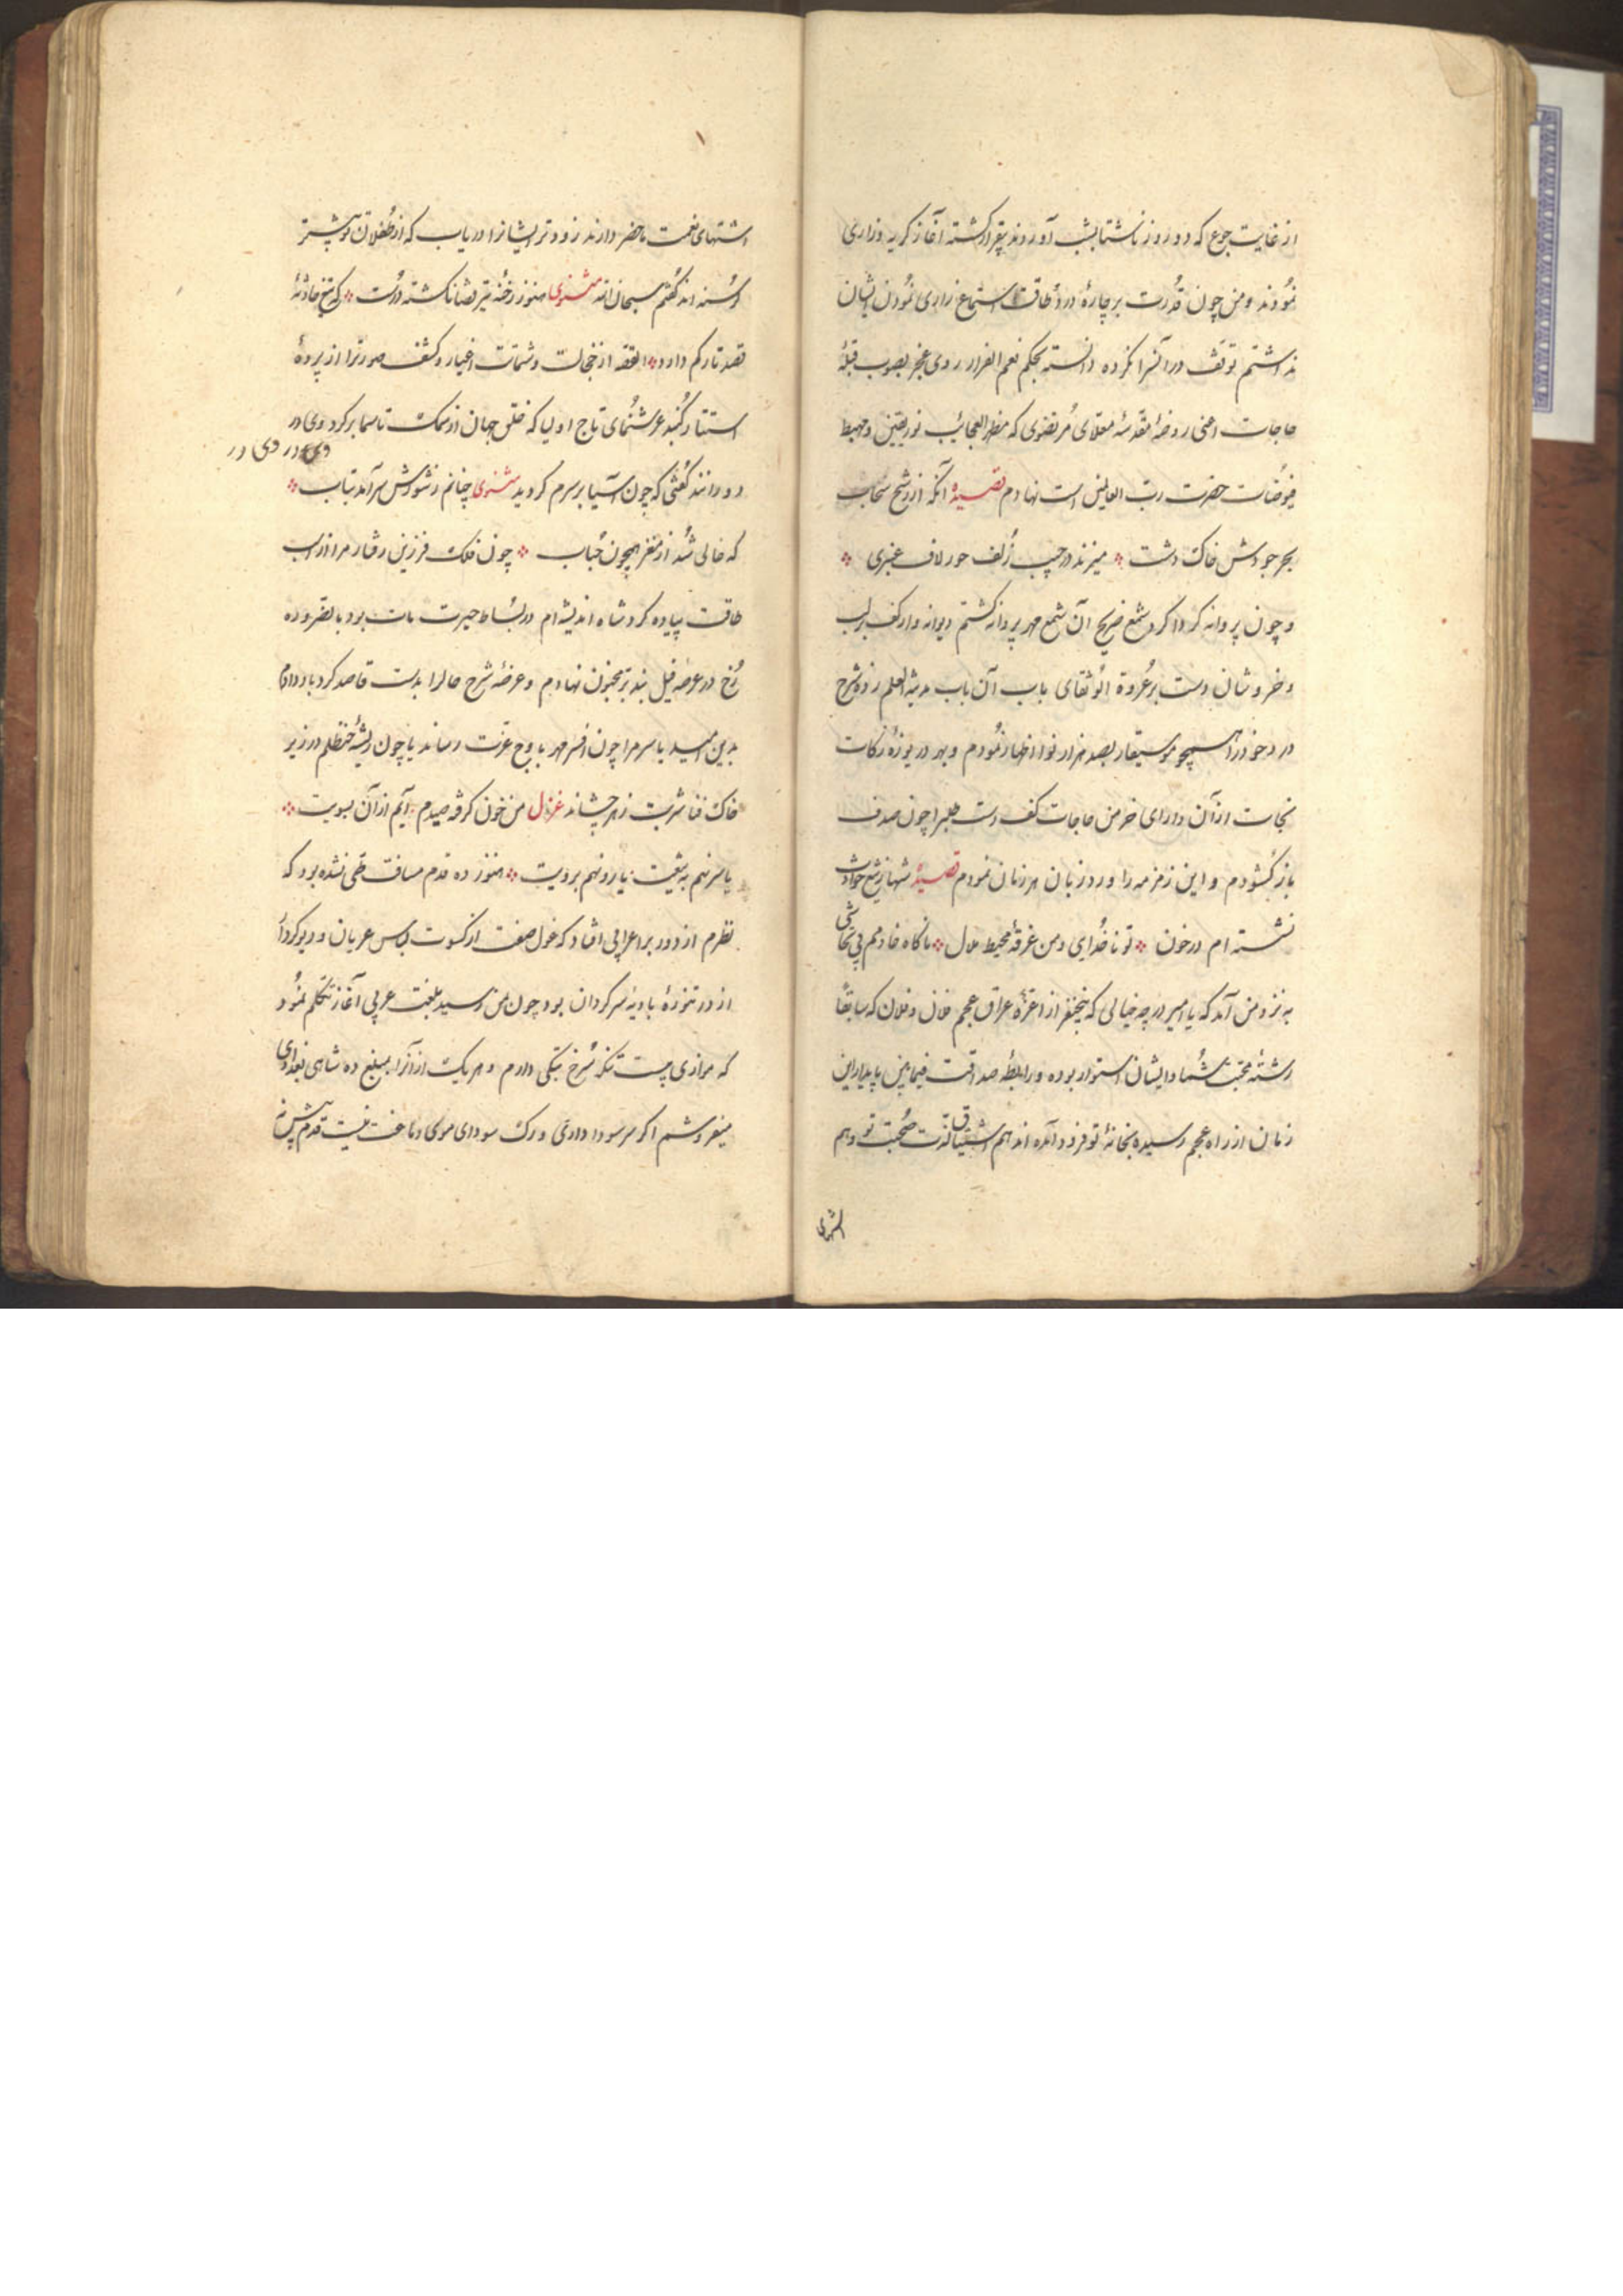 از غایت جوع که دو روز ناشتا بشب آوردند بیقرار گشته آغاز گریه و زاری
نمودند و من چون قدرت بر چارهٔ درد و طاقت استماع زاری نمودن ایشان
نداشتم توقف در آنسرا نکرده دانسته بحکم نعم الفرار روی عجز بصوب قبلهٔ
حاجات اعنی روضهٔ مقدسهٔ معلای مرتضوی که مظهر العجائب نور یقین و مهبط
فیوضات حضرت رب العالمین است نهادم قصیده آنکه از رشح سحاب
بحر جودش خاک دشت میزند در جیب زلف حور لاف عنبری
و چون پروانه گرداگرد شمع ضریح آن شمع مهر پروانه گشتم دیوانه وار کف بر لب
و خروشان دست بر عروة الوثقای باب آن باب مدینة العلم زده شرح
درد خود را همچو موسیقار بصد هزار نوا اظهار نمودم و بهر دریوزهٔ زکات
نجات از آن دارای خرمن حاجات کف دست طلبرا چون صدف
باز گشودم و این زمزمه را ورد زبان هر زمان نمودم قصیدهٔ شها ز تیغ حوادث
نشسته ام در خون تو ناخدایی و من غرقهٔ محیط ملال ناگاه خادمم بی تحاشی
به نزد من آمد که یا امیر در چه خیالی که پنج نفر از اعزهٔ عراق عجم فلان و فلان که سابقاً
رشتهٔ محبت شما و ایشان استوار بوده و رابطهٔ صداقت فیمابین پایدار این
زمان از راه عجم رسیده بخانهٔ تو فرود آمده اند هم اشتیاق لذت صحبت تو و هم
اشتهای
اشتهای نعمت ماحضر دارند زودتر ایشانرا دریاب که از طفلان تو بیشتر
گرسنه اند گفتم سبحان الله مثنوی هنوز رخنهٔ تیر قضا نگشته درست که تیغ حادثهٔ
قصد تارکم دارد القصه از خجالت و شماتت اغیار و کشف صورترا از پردهٔ
استتار گنبد عرشنمای تاج اولیا که خلق جهان از سمک تا سما بر گرد وی در
وی در وی در
دورانند گفتی که چون آسیا بر سرم گردید مثنوی چنانم ز شورش سر آمد بتاب
که خالی شد از مغز همچون حباب چون فلک فرزین رفتار مرا از اسب
طاقت پیاده کرد شاه اندیشه ام در بساط حیرت مات بود بالضروره
رخ در عرصهٔ فیل بند بر مجنون نهادم و عرضهٔ شرح حالرا بدست قاصد گرد باد دادم
بدین امید یا سرم را چون افسر مهر باوج عزت رساند یا چون ریشهٔ حنظلم در زیر
خاک فنا شربت زهر چشاند غزل من خون گرفته صیدم آیم از آن بسویت
یا سر نهم به تیغت یا رو نهم برویت هنوز ده قدم مسافت طی نشده بود که
نظرم از دور بر اعرابی افتاد که غول صفت از کسوت لباس عریان و دیو کردار
از در تنورهٔ بادیه سرگردان بود چون بمن رسید بلغت عربی آغاز تکلم نمود
که موازی بیست تنکه سرخ بتکی دارم و هر یک از آنرا بمبلغ ده شاهی بغدادی
میفروشم اگر سر سودا داری و رگ سودای موی دماغت نیست قدم پیش نه